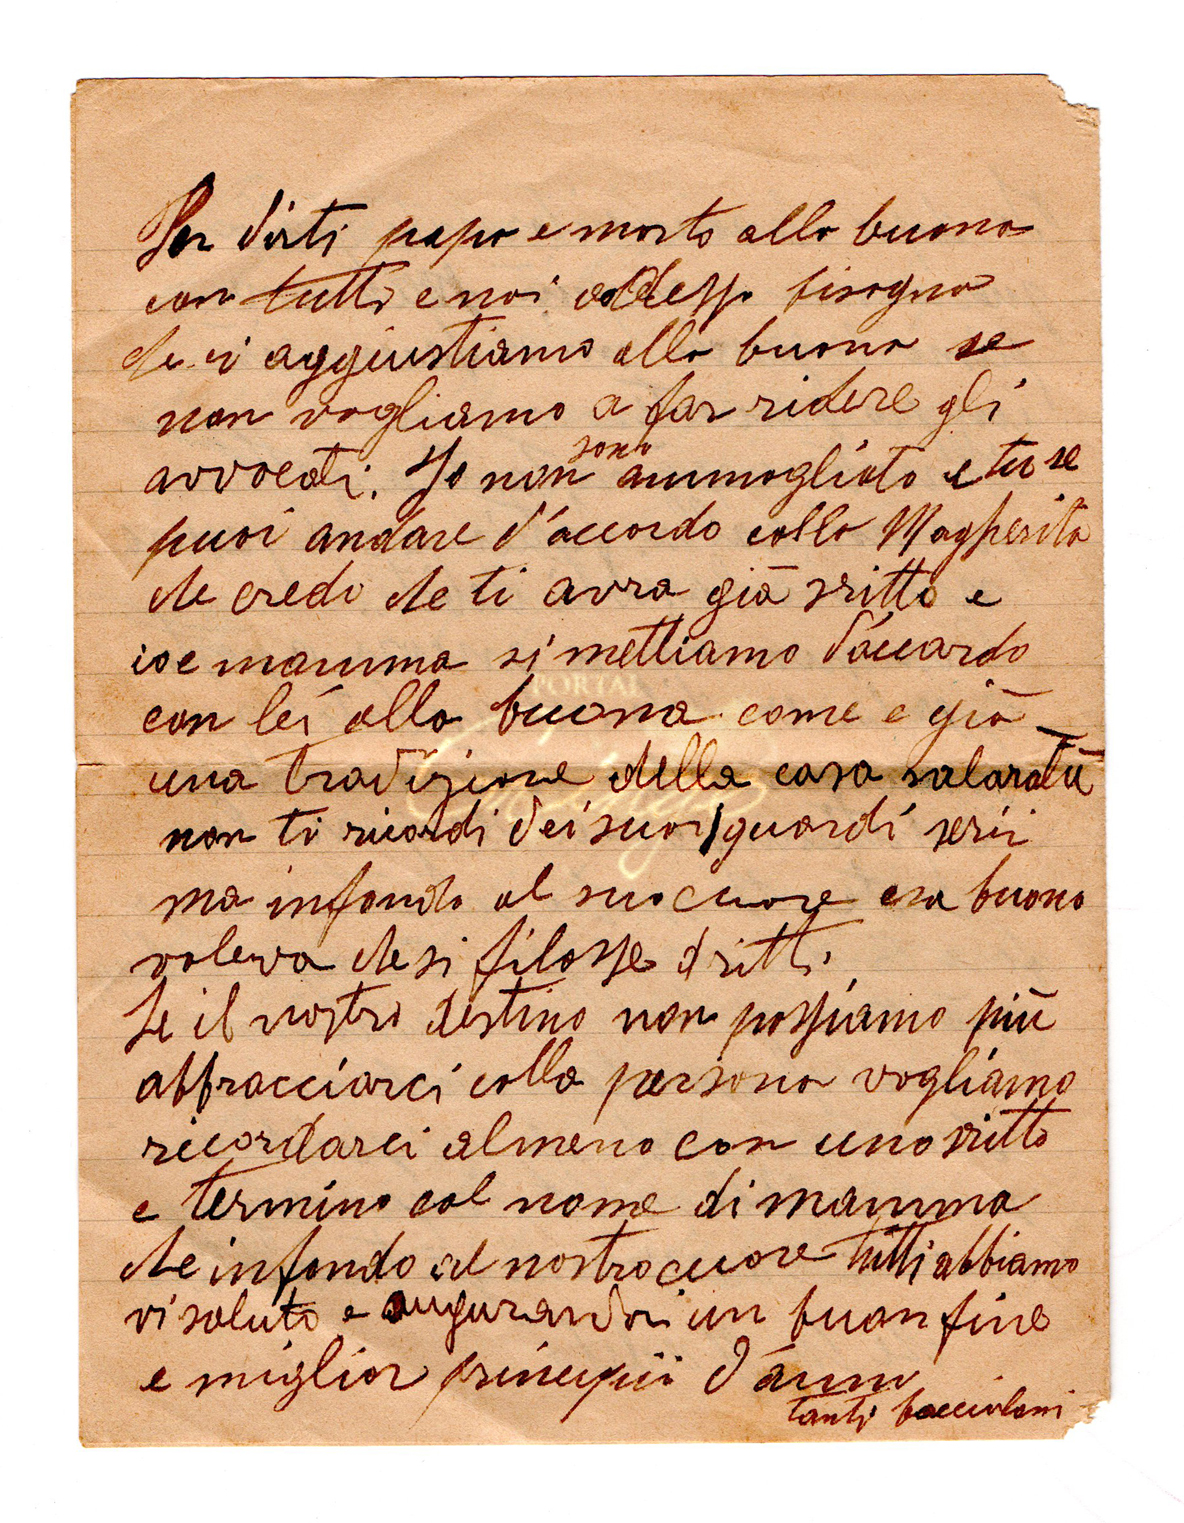 Per dirti papa e morto alla buona
con tutti e noi addesso bisogna
che ci aggiustiamo alla buona se
non vogliamo a far ridere gli
avvocati. Io non sono ammogliato e tu se
puoi andare d'accordo colla Magherita
che credo che ti avra già sritto e
io e mamma si mettiamo d'accordo
con lei alla buona come e già
una tradizione della casa salaratü
non ti ricordi dei suoi guardi serii
ma infondo al suo cuore era buono
voleva che si filasse dritti.
Se il nostro destino non possiamo più
abbracciarci colla persona vogliamo
ricordarci almeno con uno sritto
e termino col nome di mamma
che infondo al nostro cuore tutti abbiamo
vi saluto e augurandovi un buon fine
e miglior principii d'anno
tanti baccioloni
PORTAL